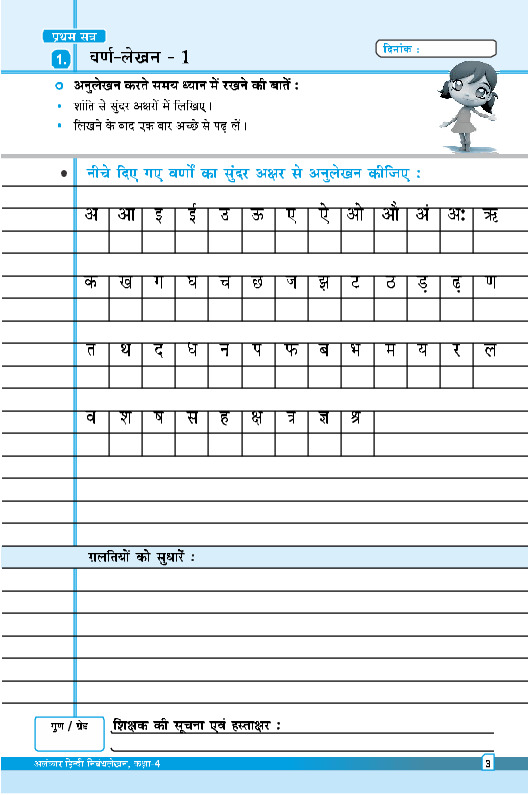 प्रथम सत्र
1. वर्ण-लेखन - 1
दिनांक :
अनुलेखन करते समय ध्यान में रखने की बातें :
• शांति से सुंदर अक्षरों में लिखिए।
• लिखने के बाद एक बार अच्छे से पढ़ लें।
• नीचे दिए गए वर्णों का सुंदर अक्षर से अनुलेखन कीजिए :
अ आ इ ई उ ऊ ए ऐ ओ औ अं अः ऋ
क ख ग घ च छ ज झ ट ठ ड़ ढ़ ण
त थ द ध न प फ ब भ म य र ल
व श ष स ह क्ष त्र ज्ञ श्र
ग़लतियों को सुधारें :
गुण / ग्रेड
शिक्षक की सूचना एवं हस्ताक्षर :
अलंकार हिन्दी निबंधलेखन, कक्षा-4
3